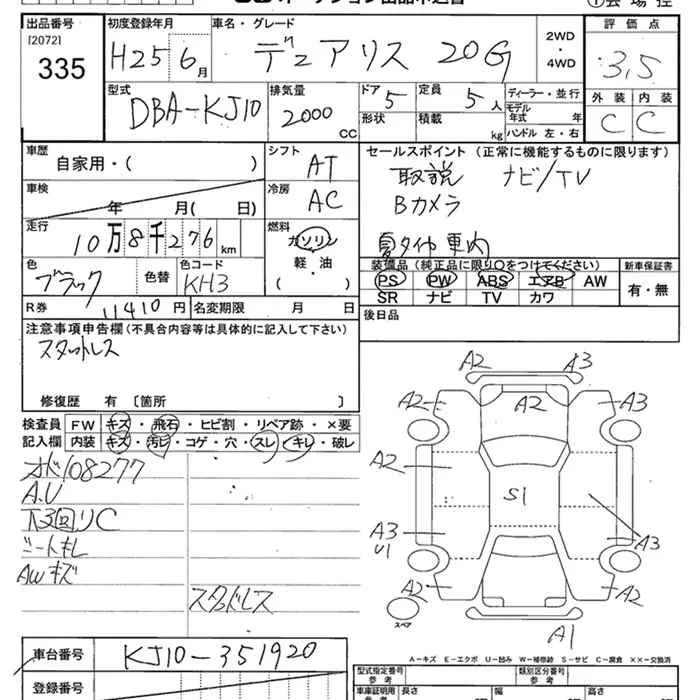 出品番号 初度登録年月 車名・グレード 2WD・4WD 評価点
[2072]
335 H25 6月 デュアリス 20G 3.5
型式 排気量 ドア 定員 ディーラー・並行 外装 内装
DBA-KJ10 2000CC 5 5人 モデル年式 年 C C
形状 積載 kg ハンドル 左・右
車歴 シフト セールスポイント (正常に機能するものに限ります)
自家用・( ) AT 取説 ナビ/TV
車検 冷房 Bカメラ
年 月( 日) AC
走行 燃料 夏タイヤ 車内
10万8千276km ガソリン 装備品 (純正品に限り○をつけてください) 新車保証書
軽・油 PS PW ABS エアB AW 有・無
色 色替 色コード ( ) SR ナビ TV カワ
ブラック KH3
R券 11410円 名変期限 月 日 後日品
注意事項申告欄 (不具合内容等は具体的に記入して下さい)
スタットレス
修復歴 有 〔箇所 〕
検査員 FW キズ・飛石・ヒビ割・リペア跡・×要
記入欄 内装 キズ・汚ビ・コゲ・穴・スレ・キレ・破レ
108277
A.U
下3回リC
シートキレ
AWキズ
スタッドレス
A2 A3
A2 A2 A3
A2
S1
A3 U1 A3
A2 A2
スペア
A1
A-キズ E-エクボ U-凹み W-補修跡 S-サビ C-腐食 ××-交換済
車台番号 KJ10-351920
型式指定番号 参考 類別区分番号 参考
登録番号 車庫証明用 参考 長さ 幅 高